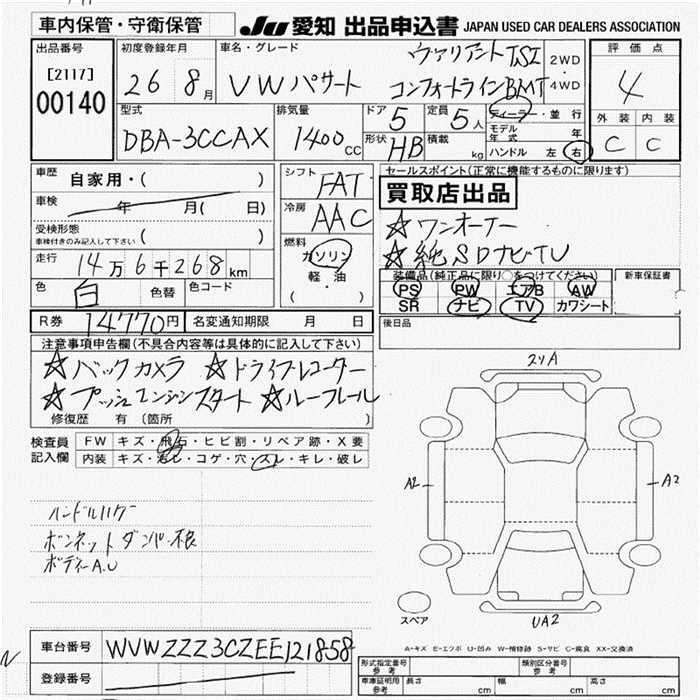 車内保管・守衛保管
JU 愛知 出品申込書 JAPAN USED CAR DEALERS ASSOCIATION
出品番号
[2117]
00140
初度登録年月
26 8月
車名・グレード
VWパサート
ヴァリアントTSI
コンフォートラインBMT
2WD
4WD
評価点
4
外装 内装
C C
型式
DBA-3CCAX
排気量
1400cc
ドア 5
形状 HB
定員 5人
積載 kg
ディーラー・並行
モデル年式 年
ハンドル 左 右
車歴 自家用・( )
車検 年 月( 日)
受検形態
車検付きのみ記入して下さい ( )
走行 14万6千268km
色 白 色替 色コード
シフト FAT
冷房 AAC
燃料
ガソリン
軽・油
( )
セールスポイント(正常に機能するものに限ります)
買取店出品
☆ワンオーナー
☆純SDナビTV
装備品(純正品に限り○をつけてください) 新車保証書
PS PW エアB AW
SR ナビ TV カワシート
後日品
R券 14770円 名変通知期限 月 日
注意事項申告欄(不具合内容等は具体的に記入して下さい)
☆バックカメラ ☆ドライブレコーダー
☆プッシュエンジンスタート ☆ルーフレール
修復歴 有 〔箇所 〕
検査員記入欄
FW キズ・飛石・ヒビ割・リペア跡・X要
内装 キズ・汚レ・コゲ・穴・スレ・キレ・破レ
ハンドルハゲ
ボンネットダンパー根
ボディーA.U
2リA
A2
A2
UA2
スペア
A-キズ E-エクボ U-凹み W-補修跡 S-サビ C-腐食 XX-交換済
車台番号 WVWZZZ3CZEE121858
登録番号
形式指定番号 参考 類別区分番号 参考
車庫証明用 参考 長さ cm 幅 cm 高さ cm